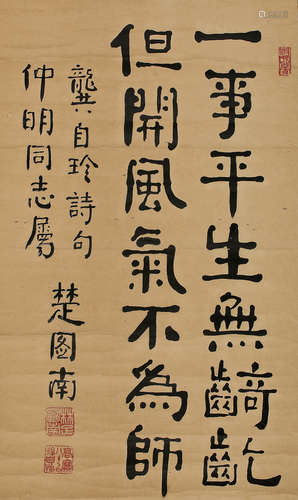 一事平生無齮齕
但開風氣不為師
龔自珍詩句
仲明同志屬
楚圖南